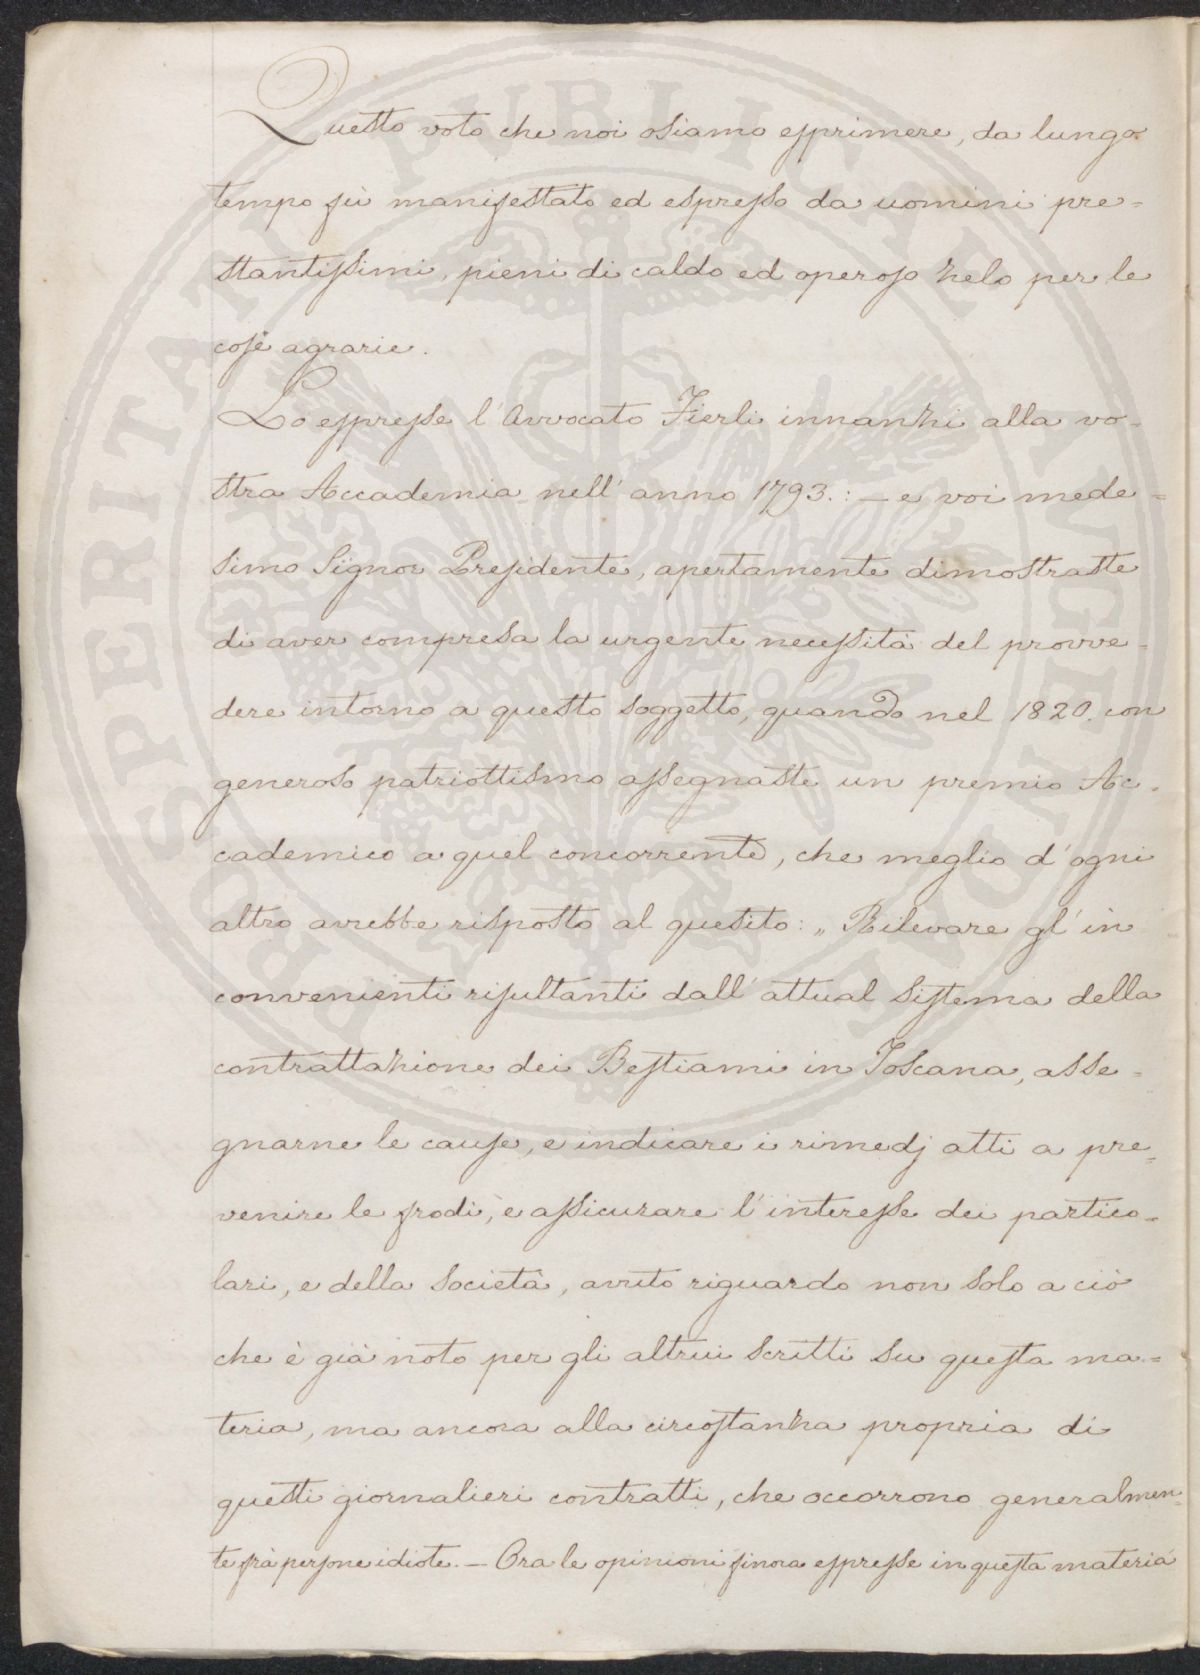 Questo voto che noi osiamo esprimere, da lungo
tempo fù manifestato ed espresso da uomini pre=
stantissimi, pieni di caldo ed operoso zelo per le
cose agrarie.
Lo espresse l'Avvocato Fierli innanzi alla vo-
stra Accademia nell'anno 1793.: — e voi mede=
simo Signor Presidente, apertamente dimostraste
di aver compresa la urgente necessità del provve-
dere intorno a questo soggetto, quando nel 1820. con
generoso patriottismo assegnaste un premio Ac-
cademico a quel concorrente, che meglio d'ogni
altro avrebbe risposto al quesito: „ Rilevare gl'in
convenienti risultanti dall'attual sistema della
contrattazione dei Bestiami in Toscana, asse-
gnarne le cause, e indicare i rimedj atti a pre=
venire le frodi, e assicurare l'interesse dei partico=
lari, e della Società, avuto riguardo non solo a ciò
che è già noto per gli altrui scritti su questa ma=
teria, ma ancora alla circostanza propria di
questi giornalieri contratti, che occorrono generalmen-
te frà persone idiote. — Ora le opinioni finora espresse in questa materia
PROSPERITATI PUBLICAE AUGENDAE